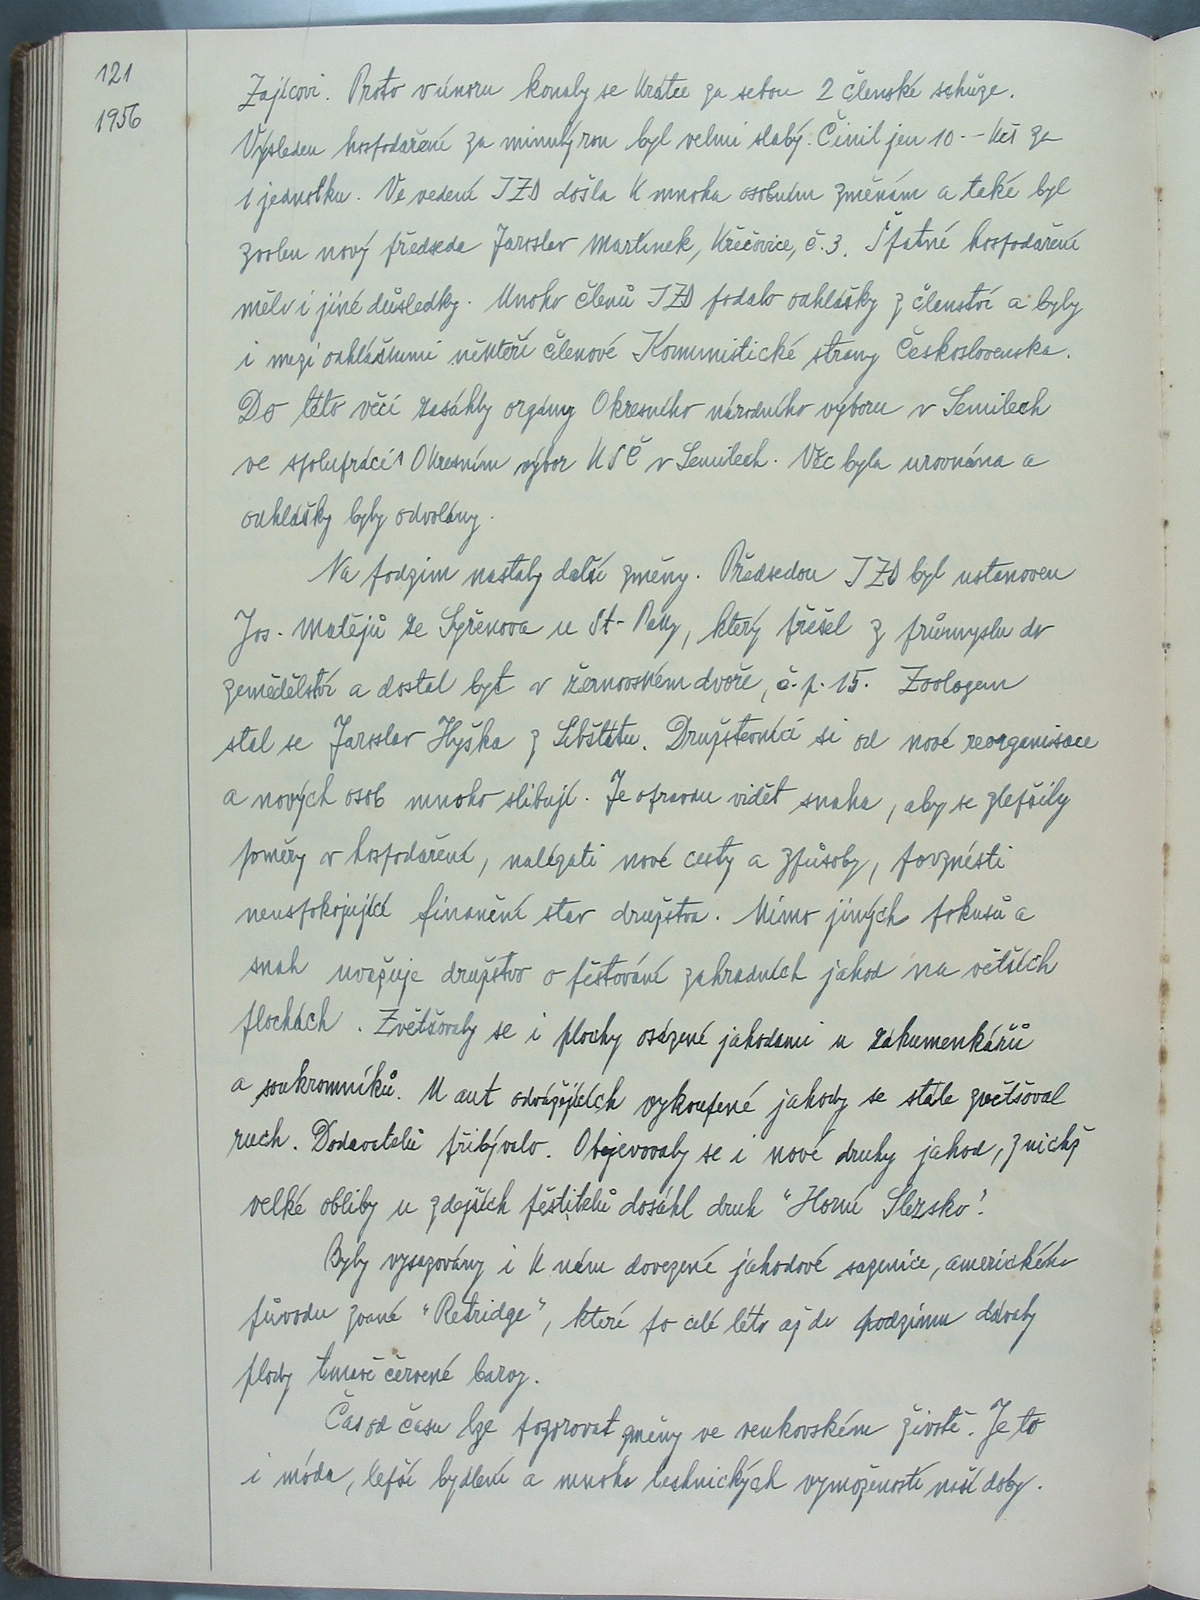 121
1956
Zajícovi. Proto v únoru konaly se krátce za sebou 2 členské schůze.
Výsledek hospodaření za minulý rok byl velmi slabý. Činil jen 10.- Kčs za
1 jednotku. Ve vedení JZD došla k mnoha osobním změnám a také byl
zvolen nový předseda Jaroslav Martinek, Křečovice, č. 3. Špatné hospodaření
mělo i jiné důsledky. Mnoho členů JZD podalo odhlášky z členství a byly
i mezi odhlášenými někteří členové Komunistické strany Československa.
Do této věci zasáhly orgány Okresního národního výboru v Semilech
ve spolupráci s Okresním výbor KSČ v Semilech. Věc byla urovnána a
odhlášky byly odvolány.
Na podzim nastaly další změny. Předsedou JZD byl ustanoven
Jos. Matějů ze Syřenova u St. Paky, který přešel z průmyslu do
zemědělství a dostal byt v žernovském dvoře, č. p. 15. Zoologem
stal se Jaroslav Hyška z Libštátu. Družstevníci si od nové reorganisace
a nových osob mnoho slibují. Je opravdu vidět snaha, aby se zlepšily
poměry v hospodaření, nalézati nové cesty a způsoby, povznésti
neuspokojující finanční stav družstva. Mimo jiných pokusů a
snah uvažuje družstvo o pěstování zahradních jahod na větších
plochách. Zvětšovaly se i plochy osázené jahodami u záhumenkářů
a soukromníků. U aut odvážejících vykoupené jahody se stále zvětšoval
ruch. Dodavatelů přibývalo. Objevovaly se i nové druhy jahod, z nichž
velké obliby u zdejších pěstitelů dosáhl druh "Horní Slezsko".
Byly vysazovány i k nám dovezené jahodové sazenice, amerického
původu zvané "Retridge", které po celé léto až do podzimu dávaly
plody tmavě červené barvy.
Čas od času lze pozorovat změny ve venkovském životě. Je to
i móda, lepší bydlení a mnoho technických vymožeností naší doby.